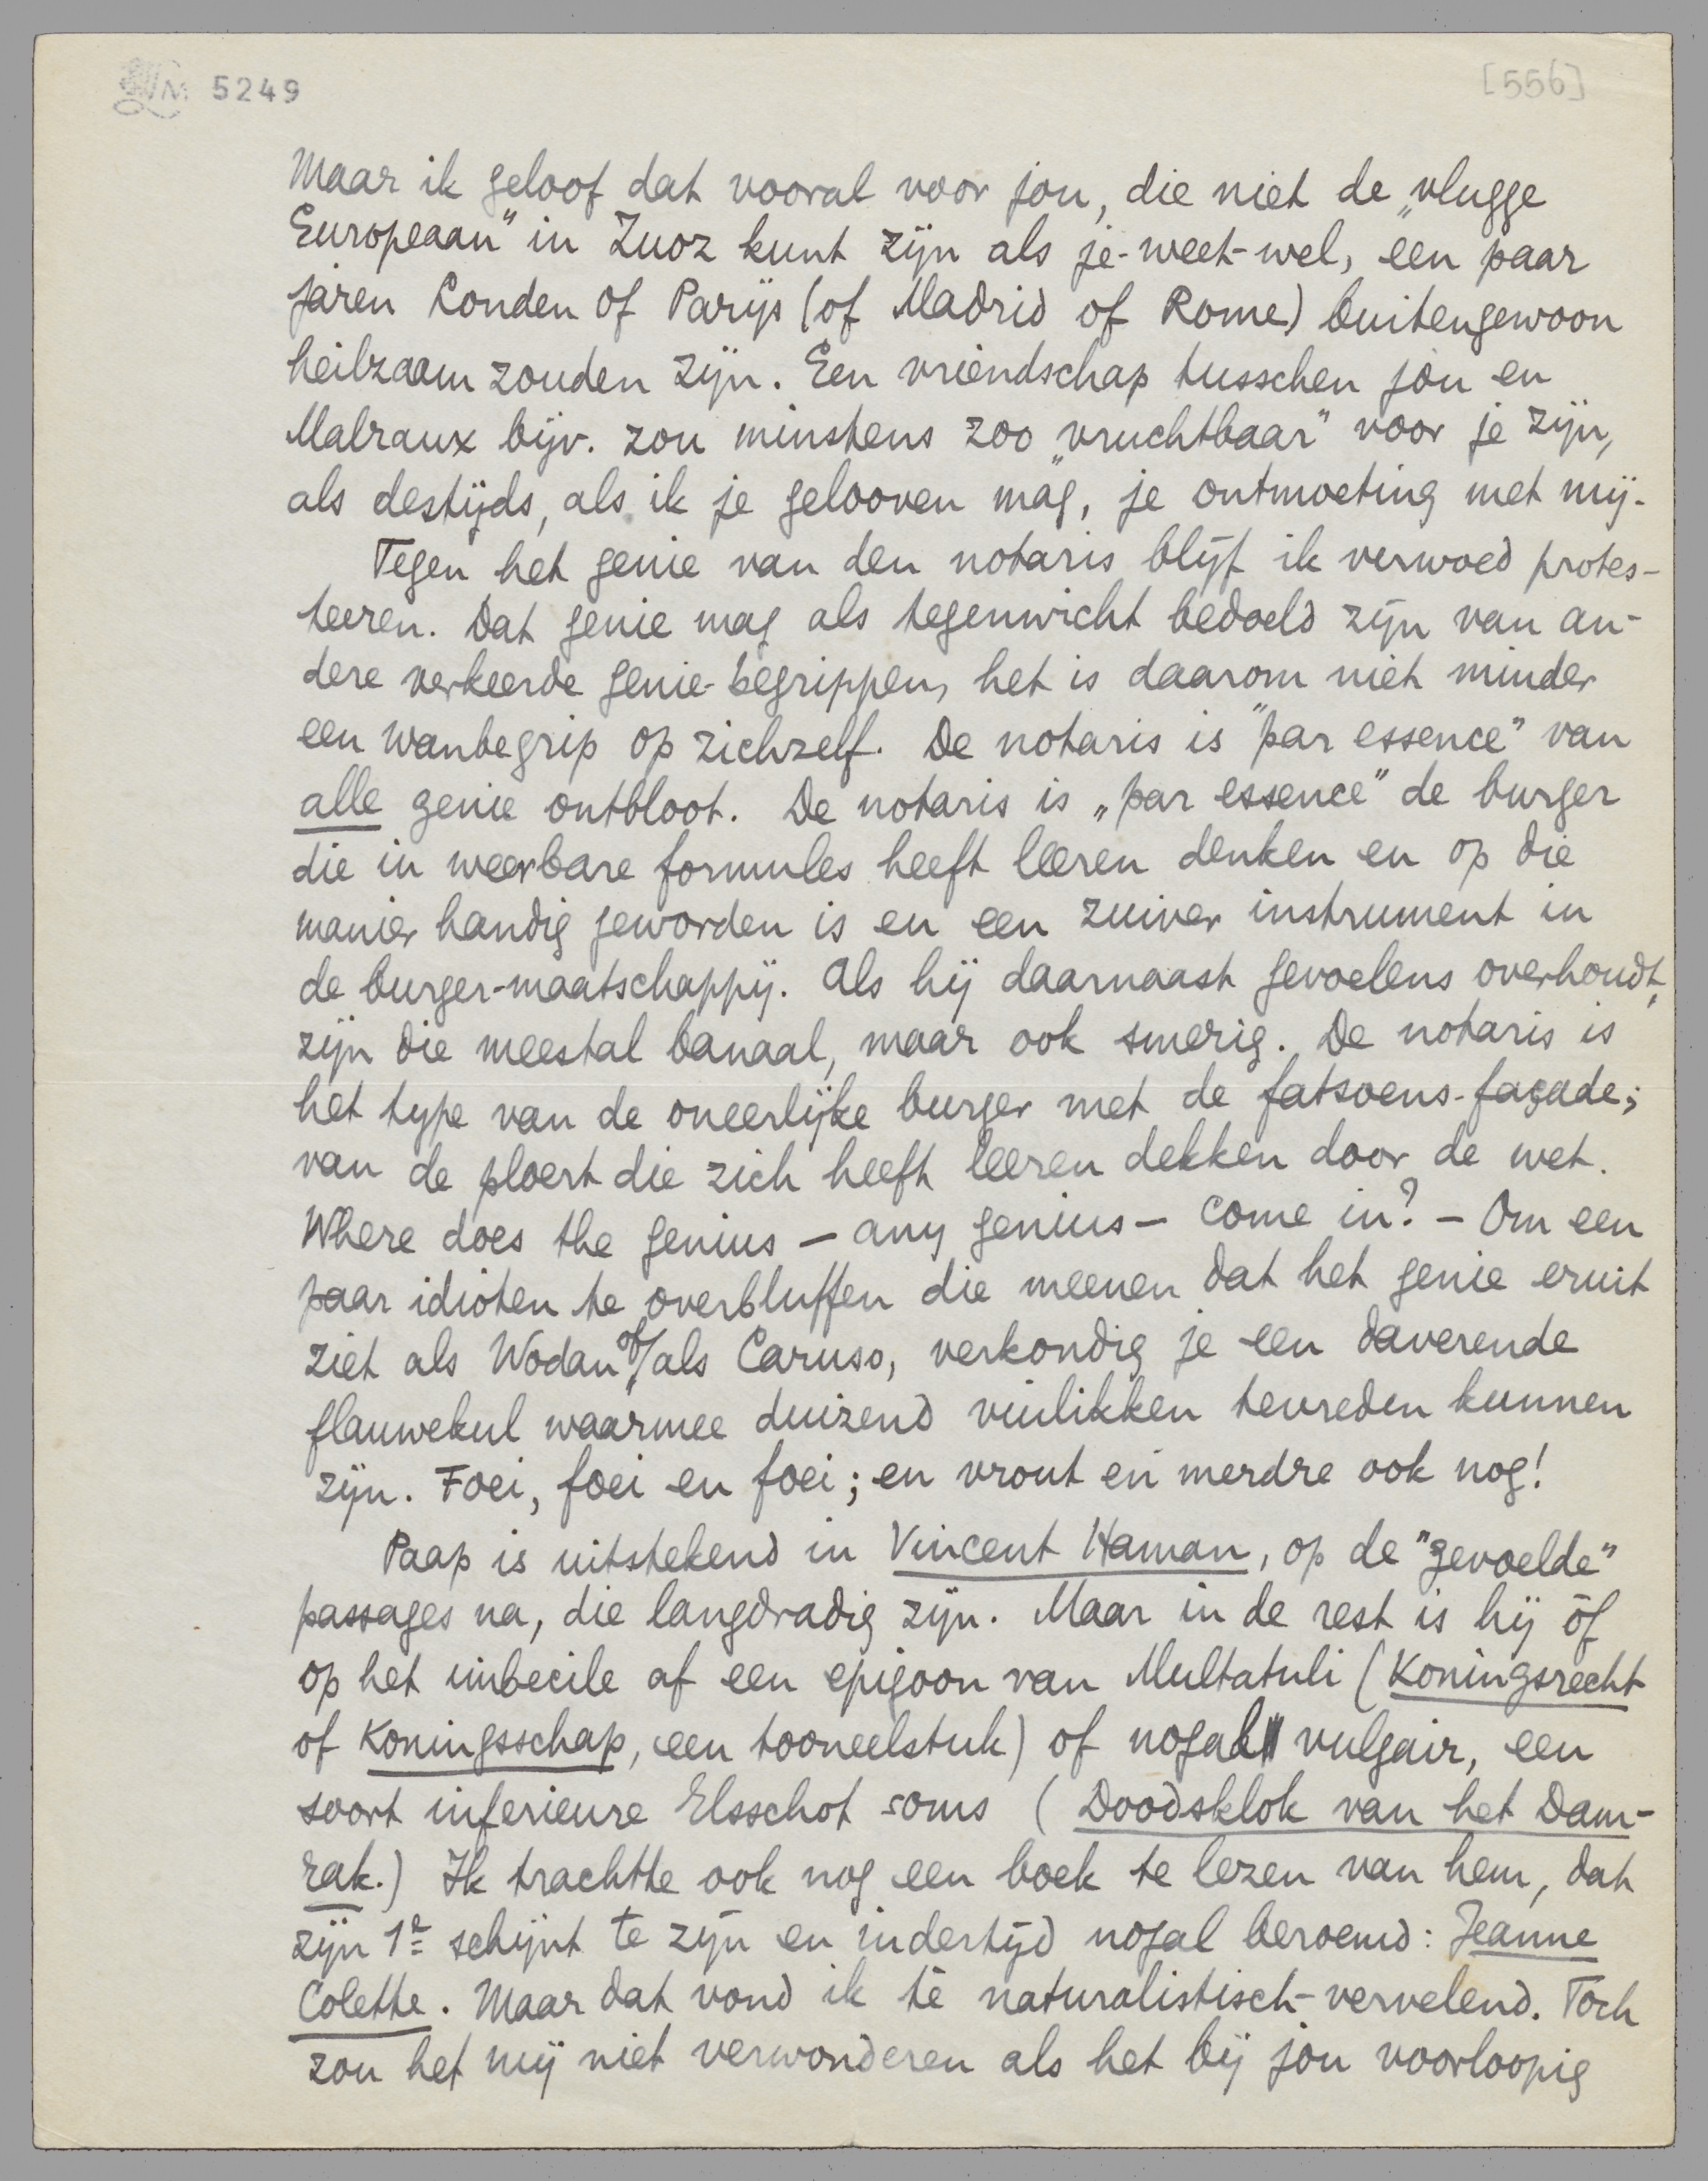 LM 5249
[556]
Maar ik geloof dat vooral voor jou, die niet de „vlugge
Europeaan" in Zuoz kunt zijn als je-weet-wel, een paar
jaren Londen of Parijs (of Madrid of Rome) buitengewoon
heilzaam zouden zijn. Een vriendschap tusschen jou en
Malraux bijv. zou minstens zoo „vruchtbaar" voor je zijn,
als destijds, als ik je gelooven mag, je ontmoeting met mij.
Tegen het genie van den notaris blijf ik verwoed protes-
teeren. Dat genie mag als tegenwicht bedoeld zijn van an-
dere verkeerde genie-begrippen, het is daarom niet minder
een wanbegrip op zichzelf. De notaris is "par essence" van
alle genie ontbloot. De notaris is „par essence" de burger
die in weerbare formules heeft leeren denken en op die
manier handig geworden is en een zuiver instrument in
de burger-maatschappij. Als hij daarnaast gevoelens overhoudt,
zijn die meestal banaal, maar ook smerig. De notaris is
het type van de oneerlijke burger met de fatsoens-façade;
van de ploert die zich heeft leeren dekken door de wet.
Where does the genius – any genius – come in? – Om een
paar idioten te overbluffen die meenen dat het genie eruit
ziet als Wodan of als Caruso, verkondig je een daverende
flauwekul waarmee duizend vuilikken tevreden kunnen
zijn. Foei, foei en foei; en vrout en merdre ook nog!
Paap is uitstekend in Vincent Haman, op de "gevoelde"
passages na, die langdradig zijn. Maar in de rest is hij òf
op het imbecile af een epigoon van Multatuli (Koningsrecht
of Koningsschap, een tooneelstuk) of nogal vulgair, een
soort inferieure Elsschot soms (Doodsklok van het Dam-
rak.) Ik trachtte ook nog een boek te lezen van hem, dat
zijn 1e schijnt te zijn en indertijd nogal beroemd: Jeanne
Colette. Maar dat vond ik té naturalistisch-vervelend. Toch
zou het mij niet verwonderen als het bij jou voorloopig